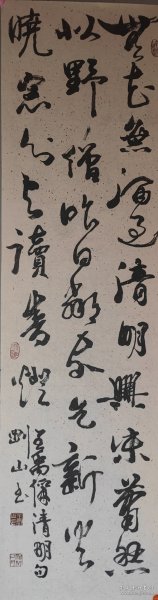 無花無酒過清明興味蕭然
似野僧昨日鄰家乞新火
曉窗分與讀書燈
王禹偁清明句
山